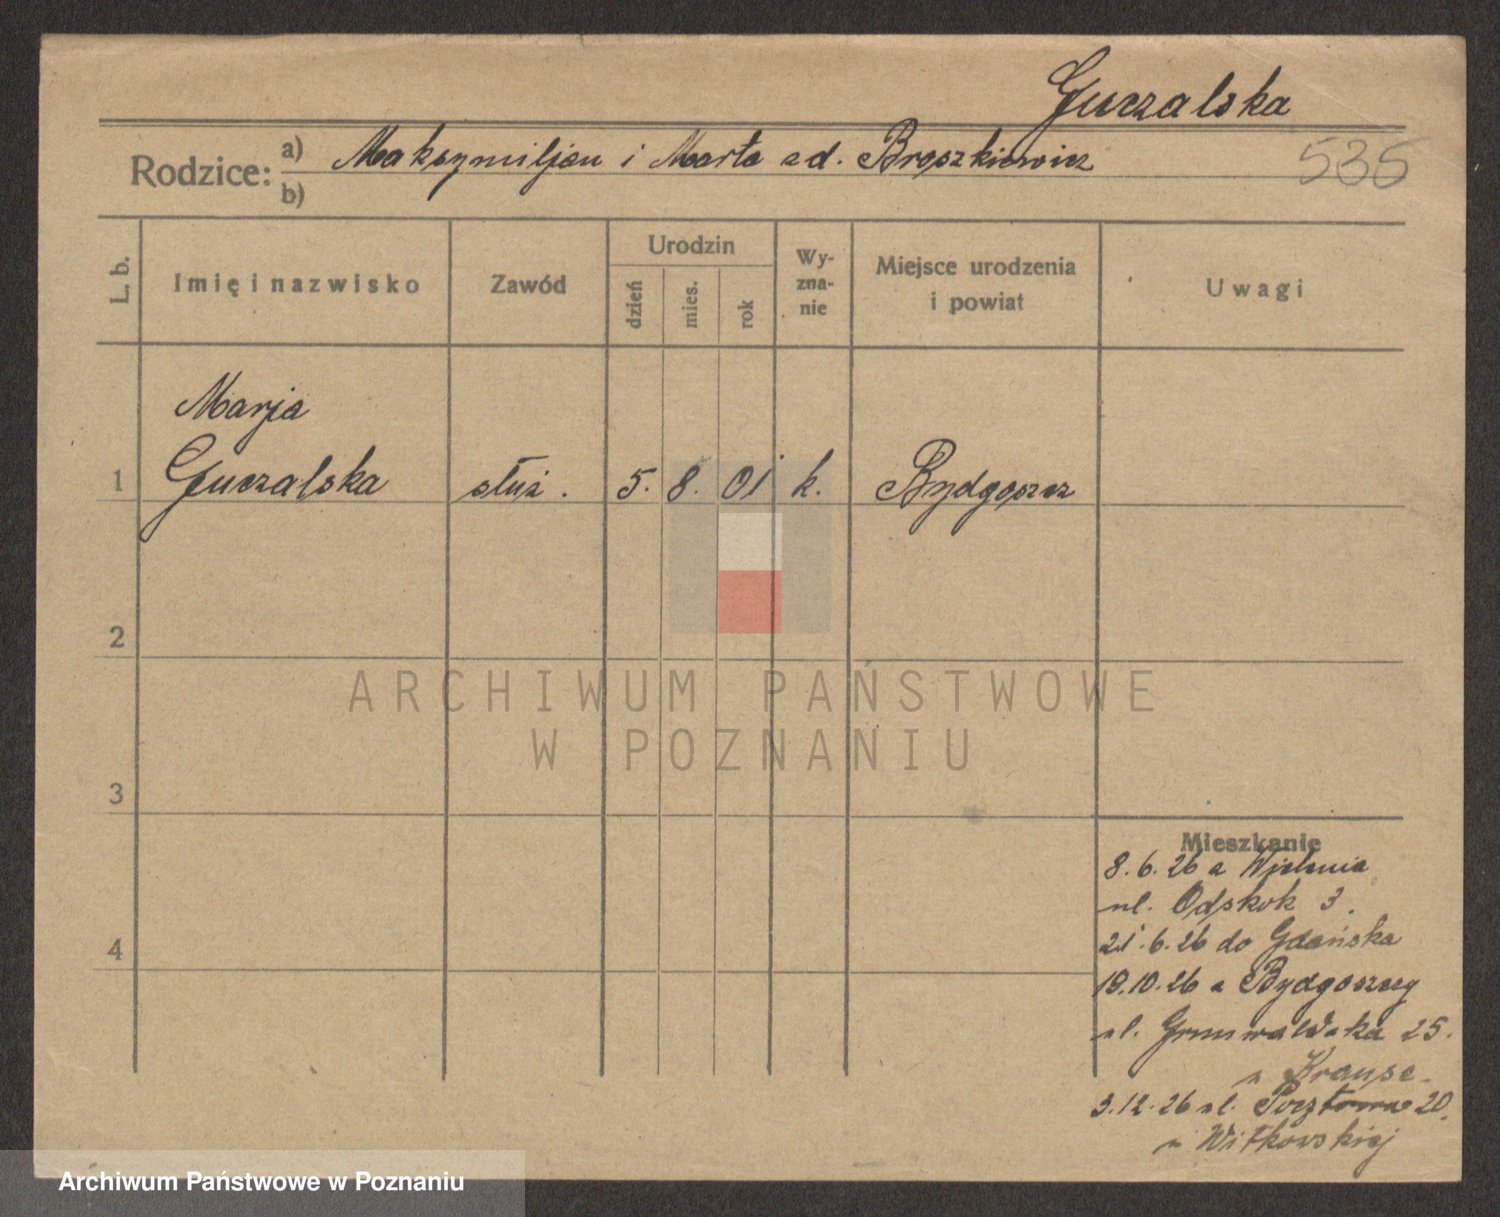 Guczalska
Rodzice: a) Maksymiljan i Marta zd. Broszkiewicz
b)
535
L. b.
Imię i nazwisko
Zawód
Urodzin
dzień
mies.
rok
Wy-
zna-
nie
Miejsce urodzenia
i powiat
Uwagi
Marja
1 Guczalska służ. 5. 8. 01 k. Bydgoszcz
2
3
4
ARCHIWUM PAŃSTWOWE
W POZNANIU
Mieszkanie
8.6.26 z Wielenia
ul. Odskok 3.
21.6.26 do Gdańska
19.10.26 z Bydgoszczy
ul. Grunwaldzka 25.
u Krause
3.12.26 ul. Pocztowa 20.
u Witkowskiej
Archiwum Państwowe w Poznaniu